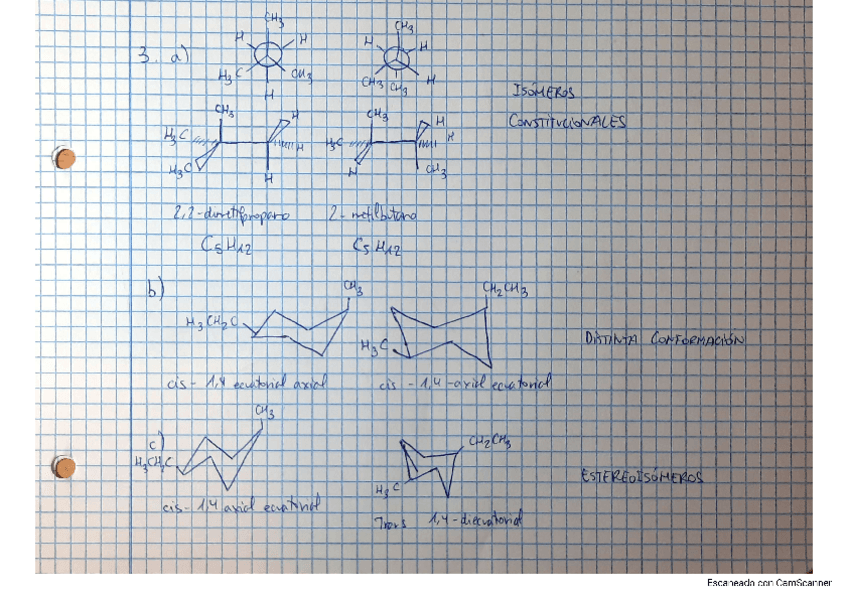 3. a)
CH3 CH3
H H H H
H3C CH3 CH3 CH3 H
H
ISÓMEROS
CONSTITUCIONALES
CH3 H CH3 H
H3C H H3C H
H3C H H CH3
2,2-dimetilpropano 2-metilbutano
C5H12 C5H12
b)
CH3 CH2CH3
H3CH2C H3C
DISTINTA CONFORMACIÓN
cis-1,4 ecuatorial axial cis-1,4-axial ecuatorial
c)
CH3 CH2CH3
H3CH2C H3C
ESTEREOISÓMEROS
cis-1,4 axial ecuatorial Trans 1,4-diecuatorial
Escaneado con CamScanner